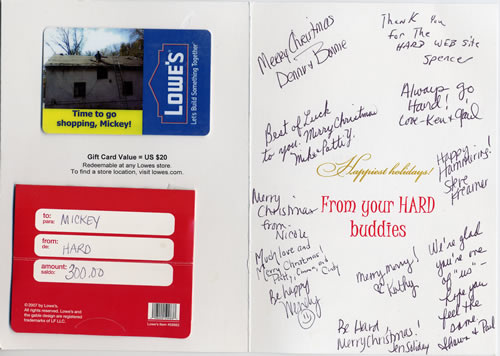 LOWE'S
Let's Build Something Together
Time to go
shopping, Mickey!
Gift Card Value = US $20
Redeemable at any Lowe's store.
To find a store location, visit lowes.com.
to:
para:
MICKEY
from:
de:
HARD
amount:
saldo:
300.00
©2007 by Lowe's.
All rights reserved. Lowe's and
the gable design are registered
trademarks of LF, LLC.
Lowe's Item
Merry Christmas
Denny & Bonnie
Thank You
for The
HARD WEB SITE
Spencer
Always go
Hard!
Love - Ken & Gail
Best of Luck
to you. Merry Christmas
Mike & Patti Y.
Happiest holidays!
Happy
Hammering!
Steve
Kreamer
From your HARD
buddies
Merry
Christmas
from
Nicole
Much love and
Merry Christmas!
Patty, Emma, and Cody
Be happy
Mendy
merry, merry!
Kathy
We're glad
you're one
of "us" -
hope you
feel the
same.
Shawn & Paul
Be Hard
Merry Christmas!
Jen Soliday